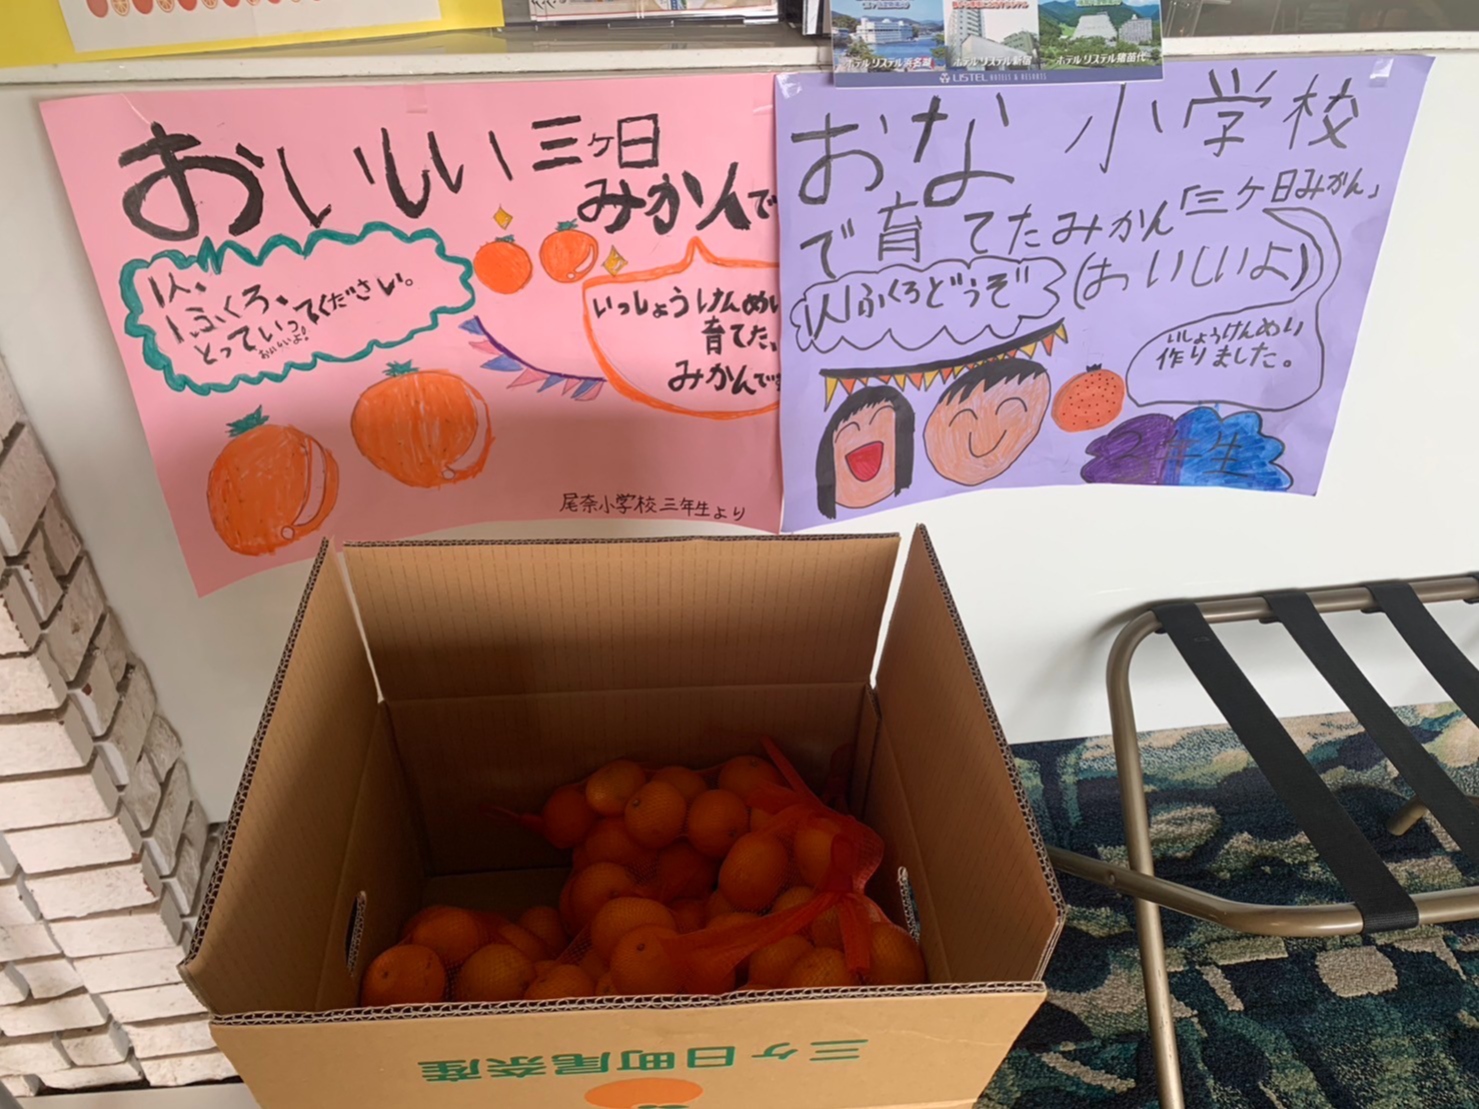 ホテル リステル浜名湖
ホテル リステル新宿
ホテル リステル猪苗代
LISTEL HOTELS & RESORTS
おいしい三ヶ日
みかんで
1人、
1ふくろ、
とっていってください。
おいしいよ!
いっしょうけんめい
育てた、
みかんです
尾奈小学校三年生より
おな小学校
で育てたみかん「三ヶ日みかん」
(おいしいよ)
1人1ふくろどうぞ
いっしょうけんめい
作りました。
3年生
三ヶ日町尾奈産